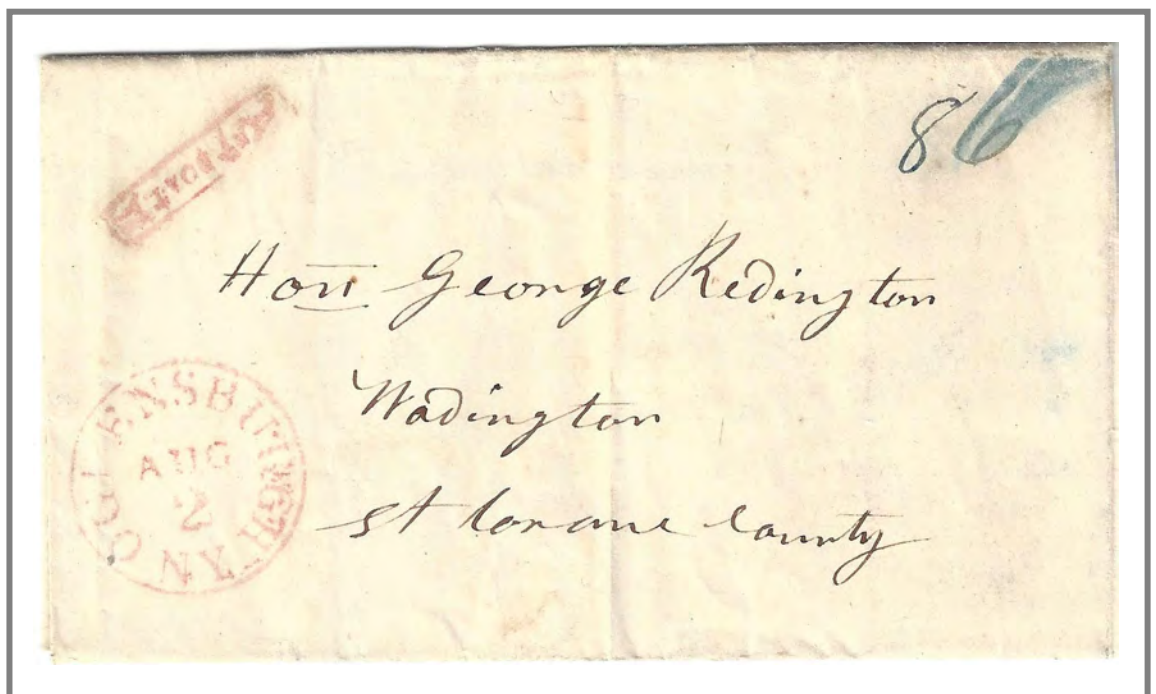 STEAMBOAT
8
Hon George Redington
Wadington
st Lorane County
OGDENSBURGH N.Y.
AUG
2